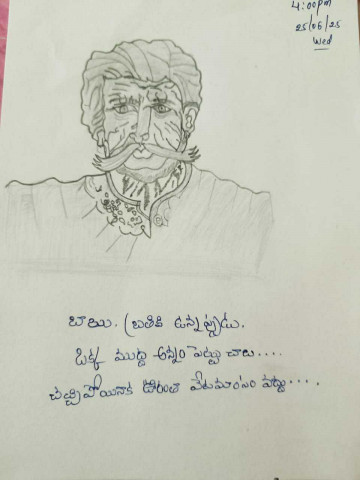 4:00pm
25/06/25
Wed
బాయి. బ్రతికి ఉన్నప్పుడు.
ఒక్క ముద్ద అన్నం పెట్టు చాలు....
చచ్చిపోయినాక ఊరంతా వేటమాంసం పెట్టు....